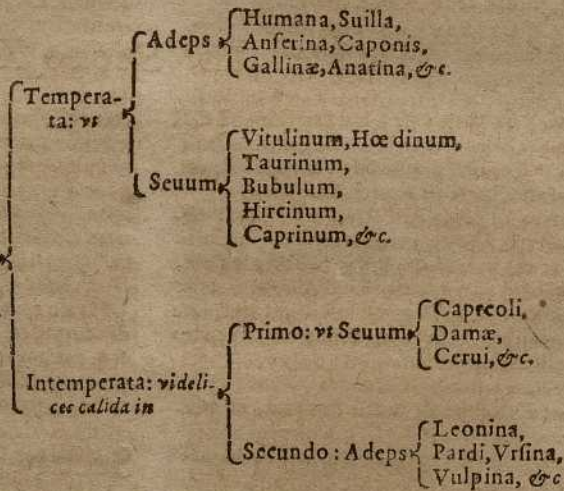 Adeps
Humana, Suilla,
Anſerina, Caponis,
Gallinæ, Anatina, &c.
Tempera-
ta: vt
Seuum
Vitulinum, Hœdinum,
Taurinum,
Bubulum,
Hircinum,
Caprinum, &c.
Intemperata: videli-
cet calida in
Primo: vt Seuum
Capreoli,
Damæ,
Cerui, &c.
Secundo: Adeps
Leonina,
Pardi, Vrſina,
Vulpina, &c